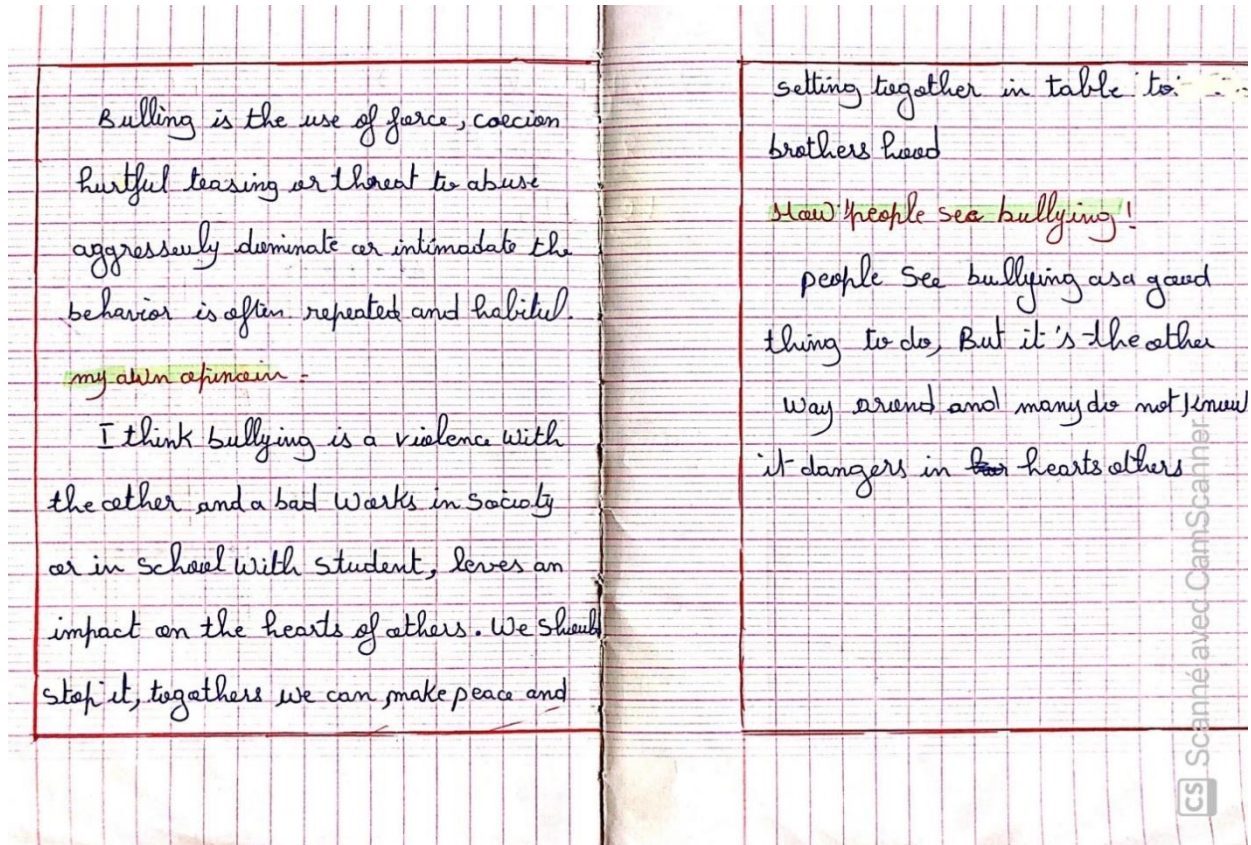 Bulling is the use of force, coecion
hurtful teasing or threat to abuse
aggresseuly dominate or intimadate the
behavior is often repeated and habitul.
my own opinoin :
I think bullying is a violence with
the other and a bad works in Society
or in school with student, leves an
impact on the hearts of others. We should
stop it, togathers we can make peace and
setting togather in table to
brothers hood
How people see bullying!
people See bullying as a good
thing to do, But it's the other
way around and many do not know
it dangers in hearts others
CS Scanné avec CamScanner